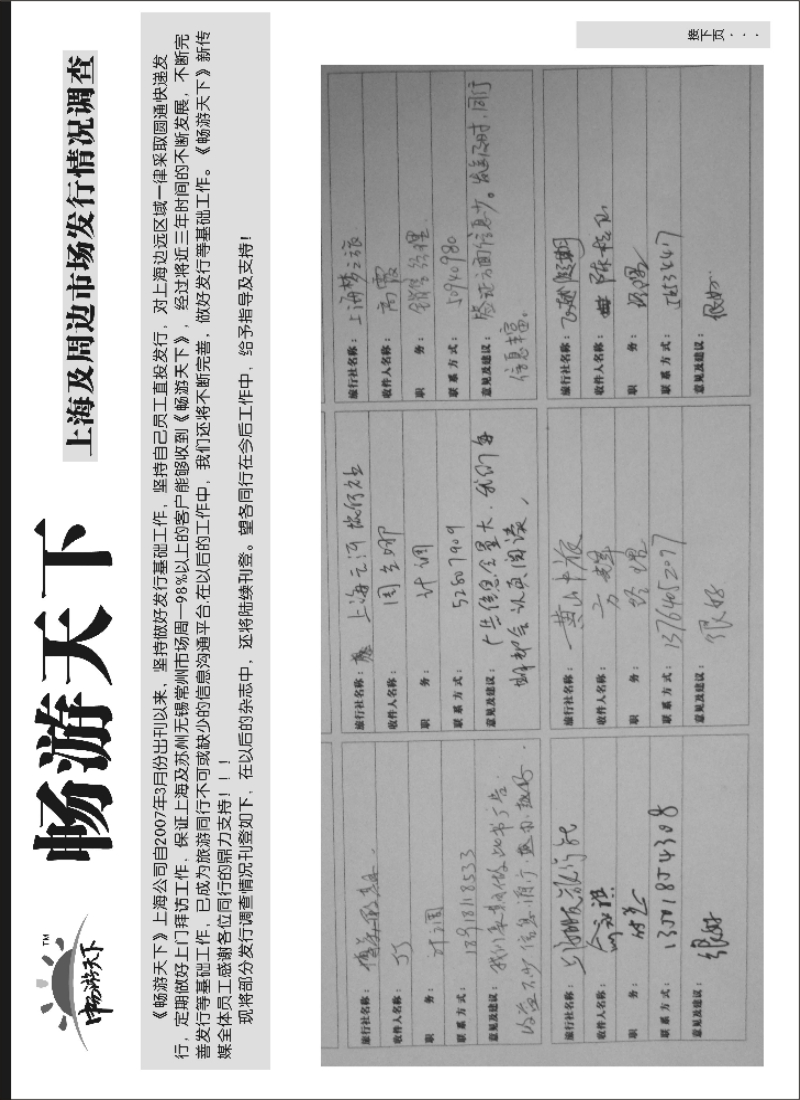 畅游天下
TM
畅游天下
上海及周边市场发行情况调查
《畅游天下》上海公司自2007年3月份出刊以来，坚持做好发行基础工作，坚持自己员工直投发行，对上海边远区域一律采取圆通快递发
行，定期做好上门拜访工作，保证上海及苏州无锡常州市场周一98%以上的客户能够收到《畅游天下》，经过将近三年时间的不断发展，不断完
善发行等基础工作，已成为旅游同行不可或缺少的信息沟通平台.在以后的工作中，我们还将不断完善，做好发行等基础工作。《畅游天下》新传
媒全体员工感谢各位同行的鼎力支持！！！
现将部分发行调查情况刊登如下，在以后的杂志中，还将陆续刊登。望各同行在今后工作中，给予指导及支持！
旅行社名称：
收件人名称：
职 务：计调
联系方式：18918118533
意见及建议：我们长期做此书广告.
收益不少.信息通行.
旅行社名称：上海云河旅行社
收件人名称：
职 务：计调
联系方式：52807909
意见及建议：广告信息全量大，我们每
期都会认真阅读，
旅行社名称：上海梦之旅
收件人名称：高霞
职 务：销售经理
联系方式：50940980
意见及建议：签证方面信息少。发送及时，同行
信息丰富。
旅行社名称：
收件人名称：
职 务：
联系方式：13501854308
意见及建议：很好
旅行社名称：黄山中旅
收件人名称：方辉
职 务：经理
联系方式：13764052077
意见及建议：很好
旅行社名称：飞越假期
收件人名称：
职 务：经理
联系方式：56534417
意见及建议：很好.
接下页···